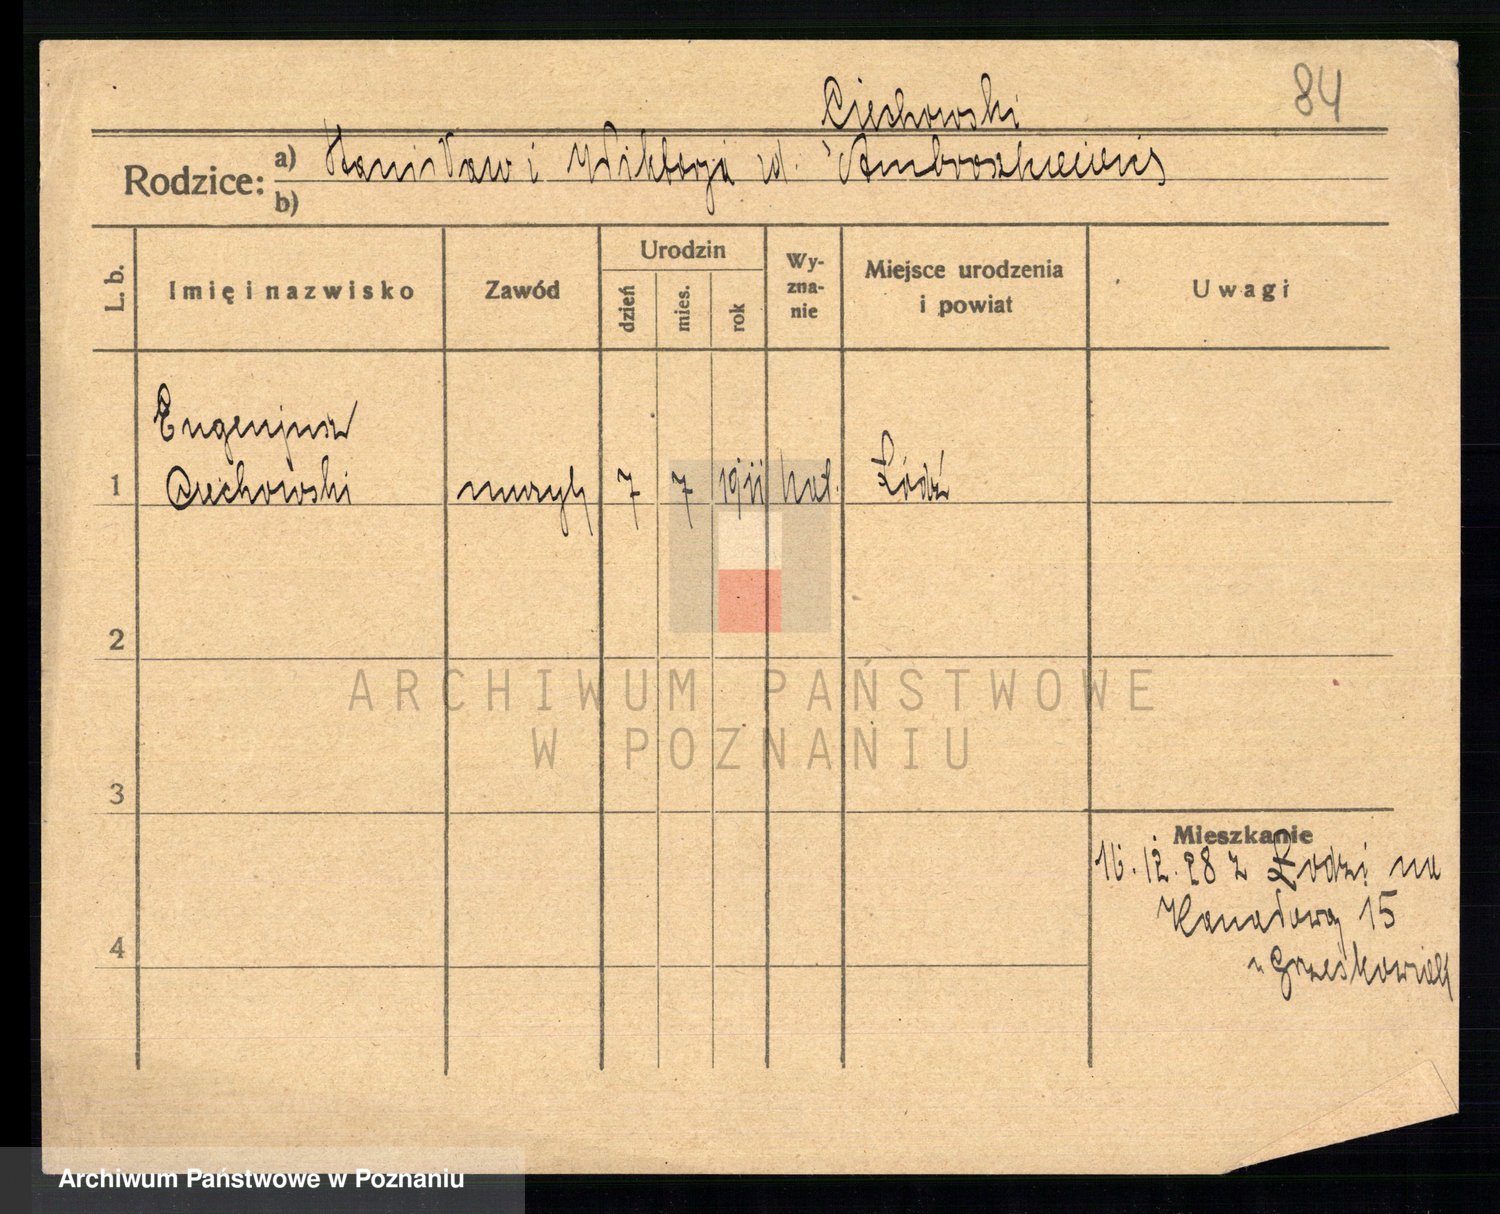 84
Ciechowski
Rodzice: a) Stanisław i Wiktorja zd. Ambroszkiewicz
b)
L. b. Imię i nazwisko Zawód Urodzin dzień mies. rok Wyznanie Miejsce urodzenia i powiat Uwagi
Eugenjusz
1 Ciechowski muzyk 7 7 1911 kat. Łódź
2
3
4
Mieszkanie
16.12.28 z Łodzi na
15
u Grześkowiak
ARCHIWUM PAŃSTWOWE
W POZNANIU
Archiwum Państwowe w Poznaniu